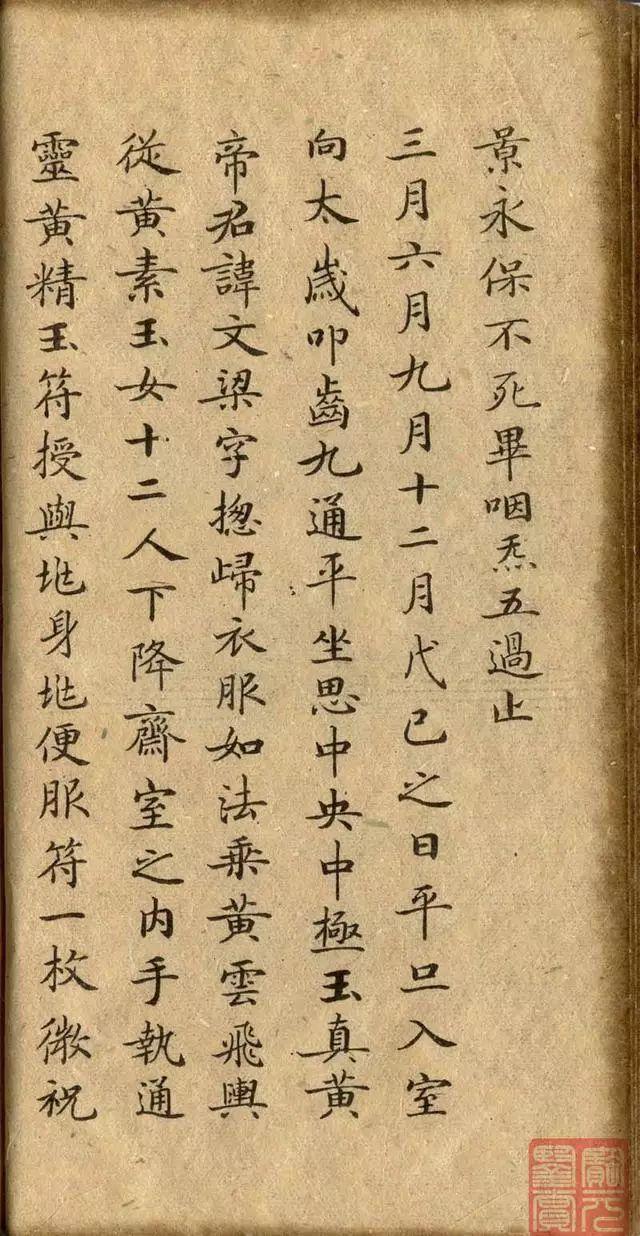 景永保不死畢咽炁五過止
三月六月九月十二月戊巳之日平旦入室
向太歲叩齒九通平坐思中央中極玉真黃
帝君諱文梁字揔歸衣服如法乗黃雲飛輿
從黃素玉女十二人下降齋室之内手執通
靈黃精玉符授與垪身垪便服符一枚微祝